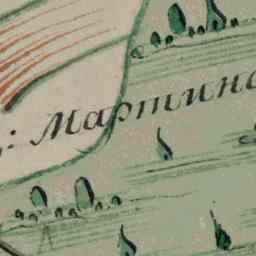 Мартино